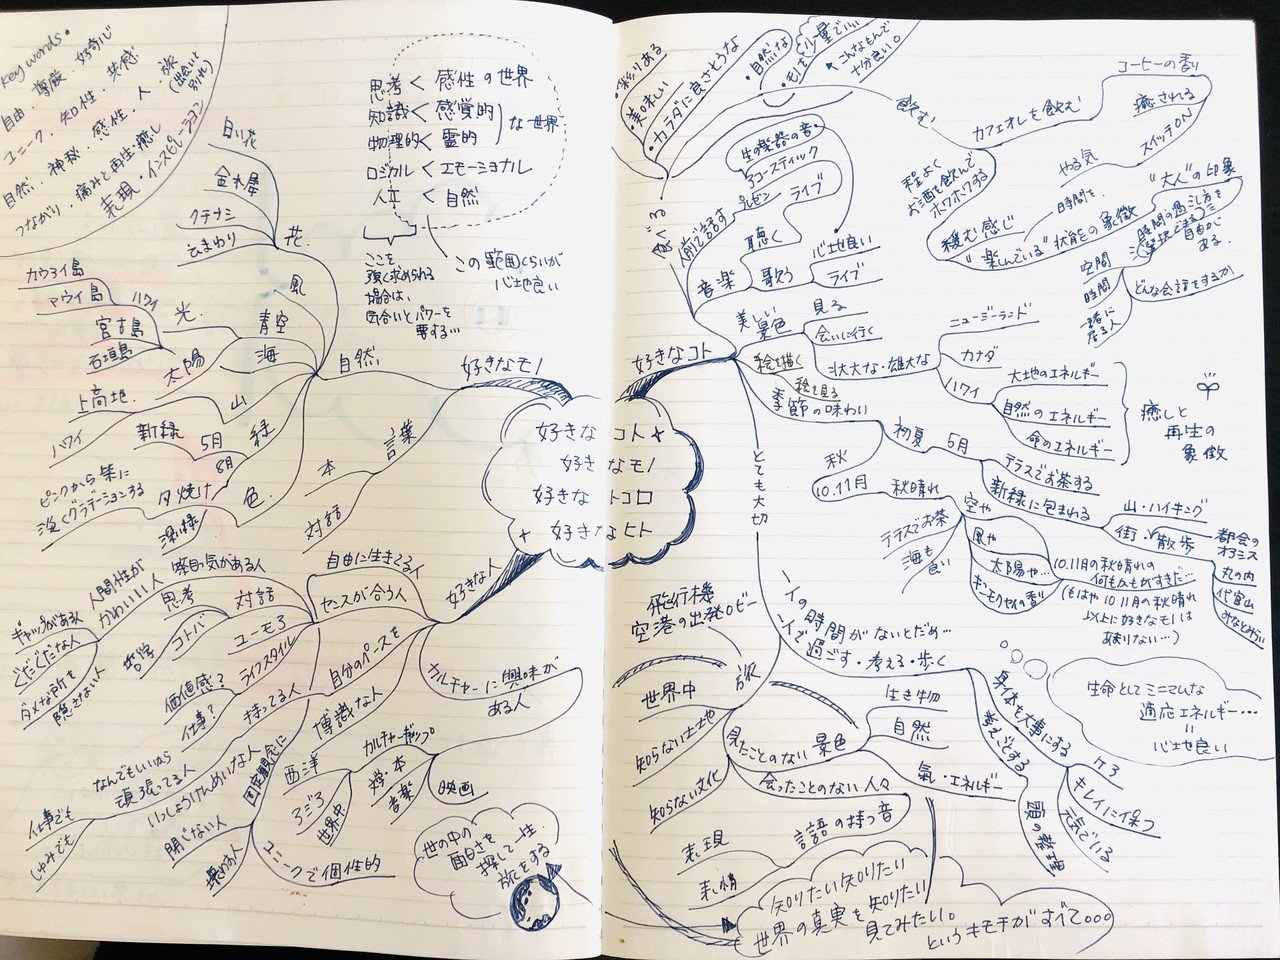 Key words.
自由・尊厳・好奇心
ユニーク・知性・共感
自然・神秘・感性・人・旅
(出会い 別れ)
つながり・痛みと再生・癒し
表現・インスピレーション
思考 < 感性の世界
知識 < 感覚的
物理的 < 霊的
な世界
ロジカル < エモーショナル
人工 < 自然
ここを
強く求められる
場合は、
気合いとパワーを
要する…
この範囲くらいが
心地良い
好きなコト
好きなモノ
好きなトコロ
好きなヒト
好きなモノ
自然
花
白い花
金木犀
クチナシ
ひまわり
風
青空
光
海
太陽
ハワイ
カウアイ島
マウイ島
宮古島
石垣島
山
上高地
ハワイ
緑
5月
新緑
8月
深い緑
色
夕焼け
ピンクから紫に
淡くグラデーションする
言葉
本
対話
好きな人
自由に生きてる人
センスが合う人
対話
ユーモア
ライフスタイル
価値感?
仕事?
思考
コトバ
哲学
人間性が
かわいい人
ギャップがある人
どだくだな人
ダメな所も
隠さない人
自分のペースを
持ってる人
博識な人
いっしょうけんめいな人
なんでもいいから
頑張ってる人
仕事でも
しゅみでも
固定観念に
閉じない人
ユニークで個性的
カルチャーに興味が
ある人
カルチャーギャップ
西洋
アジア
世界中
学・本
音楽
映画
世の中の
面白さを
探して一生
旅をする
好きなコト
食べる
・彩りある
・美味しい
・カラダに良さそうな
・自然な
・モノを
少量でいい
こんなもんで
十分良い。
飲む
カフェオレを飲む
コーヒーの香り
癒される
スイッチON
やる気
程よく
お酒を飲んで
ホワホワする
緩む感じ
時間を
"楽しんでいる"状態の象徴
"大人"の印象
時間の過し方を
選択できる
自由が
ある
空間
時間
一緒に
居る人
どんな会話をするか
人前で話す
プレゼン
ライブ
音楽
聴く
生の楽器の音
アコースティック
ライブ
歌う
心地良い
ライブ
美しい
景色
見る
会いに行く
壮大な・雄大な
ニュージーランド
カナダ
ハワイ
大地のエネルギー
自然のエネルギー
命のエネルギー
癒しと
再生の
象徴
絵を描く
絵を見る
季節の味わい
初夏
5月
テラスでお茶する
新緑に包まれる
山・ハイキング
街・散歩
都会の
オアシス
丸の内
代官山
みなとみらい
秋
10.11月
秋晴れ
テラスでお茶
海も
良い
空や
風や
太陽や…
キンモクセイの香り
10.11月の秋晴れの
何もかもがすきだ…
(もはや10.11月の秋晴れ
以上に好きなモノは
あまりない…)
とても大切
一人の時間がないとだめ…
一人で過ごす・考える・歩く
身体も大事にする
ケア
キレイに保つ
元気でいる
考えごとする
頭の整理
生命としてミニマムな
適応エネルギー…
=
心地良い
旅
飛行機
空港の出発ロビー
世界中
知らない土地
知らない文化
見たことのない景色
生き物
自然
氣・エネルギー
会ったことのない人々
言語の持つ音
表現
表情
知りたい知りたい
世界の真実を知りたい
見てみたい。
というキモチがすべて。。。